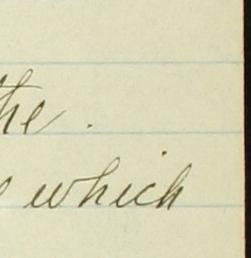 the.
which